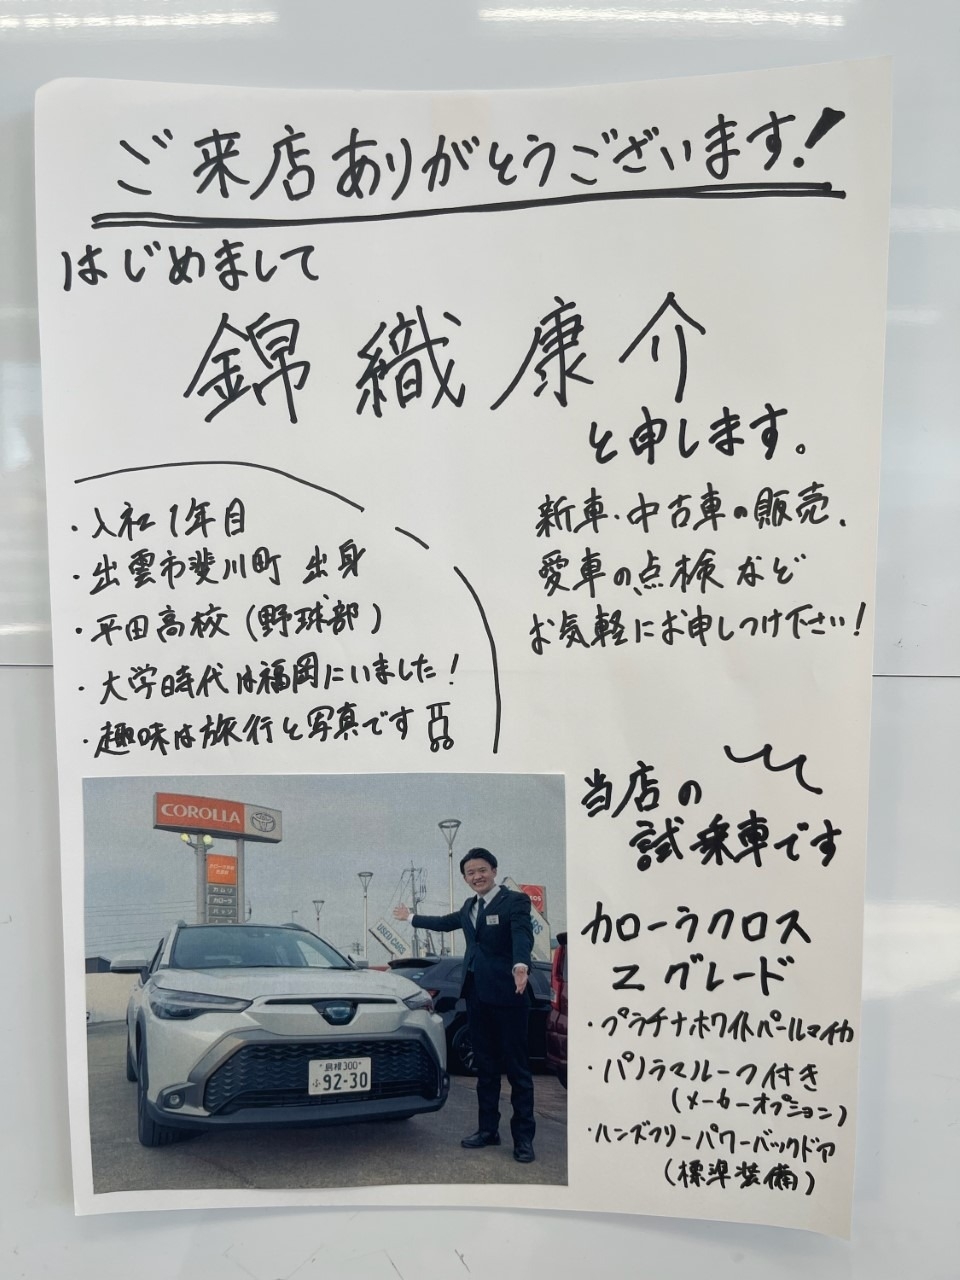 ご来店ありがとうございます!
はじめまして
錦織康介
と申します。
・入社1年目
・出雲市斐川町 出身
・平田高校(野球部)
・大学時代は福岡にいました!
・趣味は旅行と写真です
新車・中古車の販売、
愛車の点検など
お気軽にお申しつけ下さい!
当店の
試乗車です
カローラクロス
Z グレード
・プラチナホワイトパールマイカ
・パノラマルーフ付き
(メーカーオプション)
・ハンズフリーパワーバックドア
(標準装備)
COROLLA
カムリ
カローラ
USED CARS
島根 300
ふ 92-30